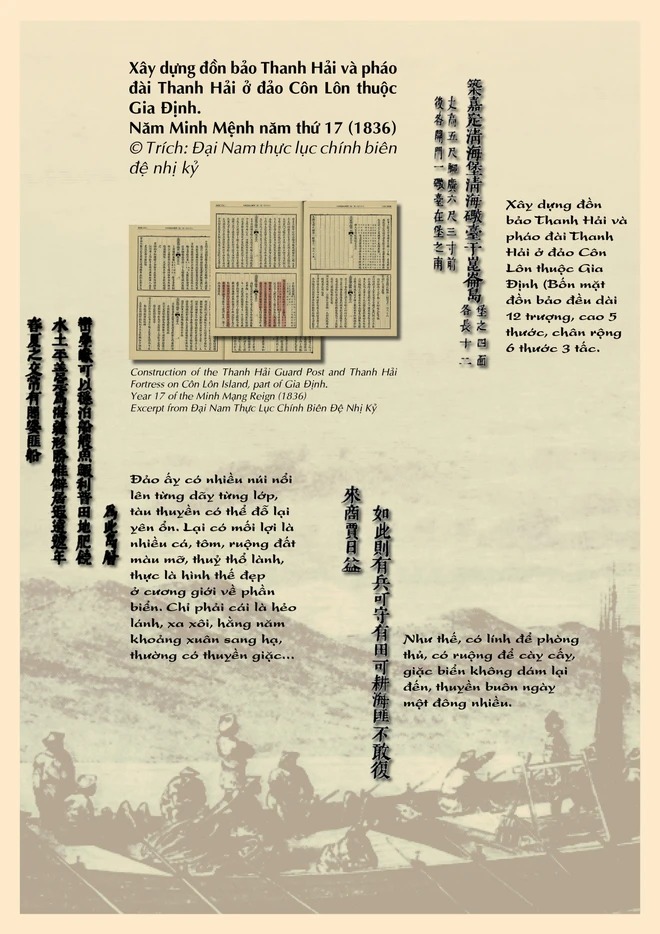 Xây dựng đồn bảo Thanh Hải và pháo
đài Thanh Hải ở đảo Côn Lôn thuộc
Gia Định.
Năm Minh Mệnh năm thứ 17 (1836)
© Trích: Đại Nam thực lục chính biên
đệ nhị kỷ
築嘉定清海堡清海礮臺于崑崙島
堡之四面
各長十二
丈高五尺脚廣六尺三寸前
後各開門一礮臺在堡之南
Xây dựng đồn
bảo Thanh Hải và
pháo đài Thanh
Hải ở đảo Côn
Lôn thuộc Gia
Định (Bốn mặt
đồn bảo đều dài
12 trượng, cao 5
thước, chân rộng
6 thước 3 tấc.
Construction of the Thanh Hải Guard Post and Thanh Hải
Fortress on Côn Lôn Island, part of Gia Định.
Year 17 of the Minh Mạng Reign (1836)
Excerpt from Đại Nam Thực Lục Chính Biên Đệ Nhị Kỷ
為此島層
巒疊巘可以穩泊船艘魚蝦利普田地肥饒
水土平善亦爲海疆形勝惟僻居遐遠遞年
春夏之交常有闍婆匪船
Đảo ấy có nhiều núi nổi
lên từng dãy từng lớp,
tàu thuyền có thể đỗ lại
yên ổn. Lại có mối lợi là
nhiều cá, tôm, ruộng đất
màu mỡ, thuỷ thổ lành,
thực là hình thế đẹp
ở cương giới về phần
biển. Chỉ phải cái là hẻo
lánh, xa xôi, hằng năm
khoảng xuân sang hạ,
thường có thuyền giặc...
如此則有兵可守有田可耕海匪不敢復
來商賈日益
Như thế, có lính để phòng
thủ, có ruộng để cày cấy,
giặc biển không dám lại
đến, thuyền buôn ngày
một đông nhiều.